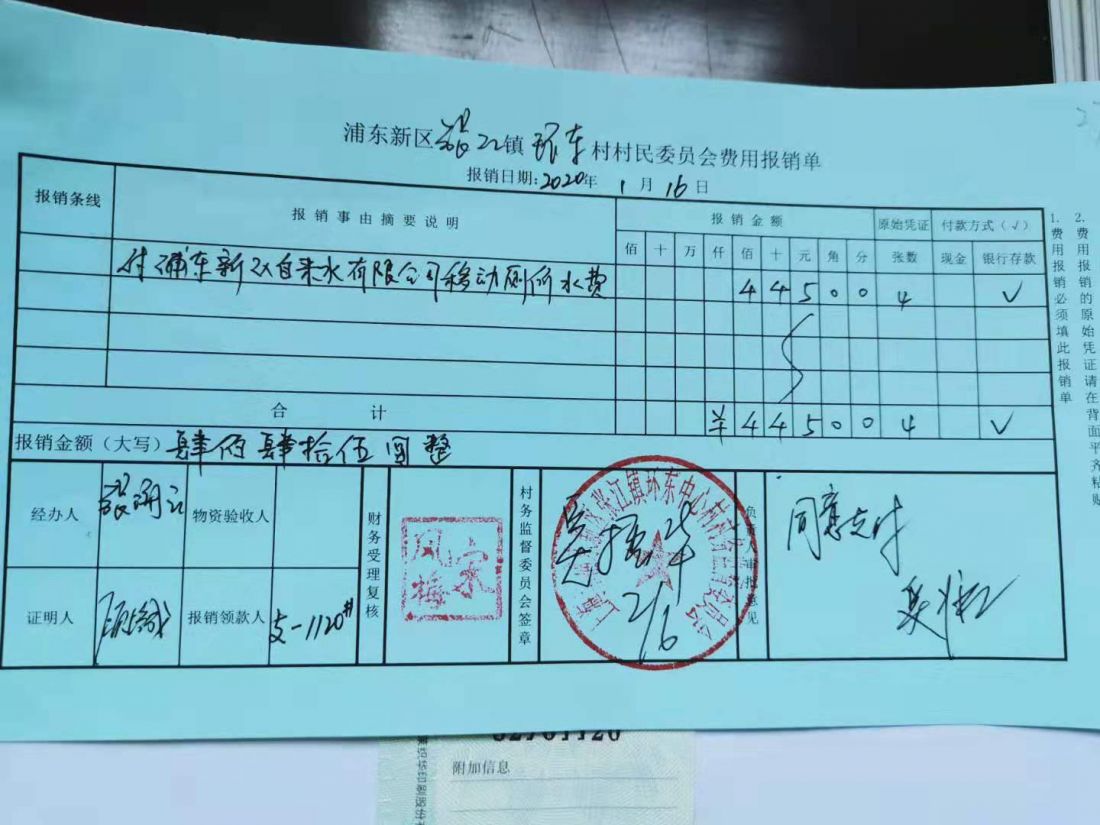 浦东新区张江镇环东村村民委员会费用报销单
报销日期:2020年1月16日
报销条线 报销事由摘要说明 报销金额 原始凭证 付款方式(√)
佰 十 万 仟 佰 十 元 角 分 张数 现金 银行存款
付浦东新区自来水有限公司移动厕所水费 4 4 5 0 0 4 √
合计 ¥ 4 4 5 0 0 4 √
报销金额(大写) 肆佰肆拾伍圆整
经办人 物资验收人
证明人 报销领款人 支-1120#
财务受理复核
周宋梅
村务监督委员会签章
张江镇环东中心村村务监督委员会
2/16
负责人审批意见
同意支付
1.费用报销必须填此报销单
2.费用报销的原始凭证请在背面平齐粘贴
02701120
附加信息